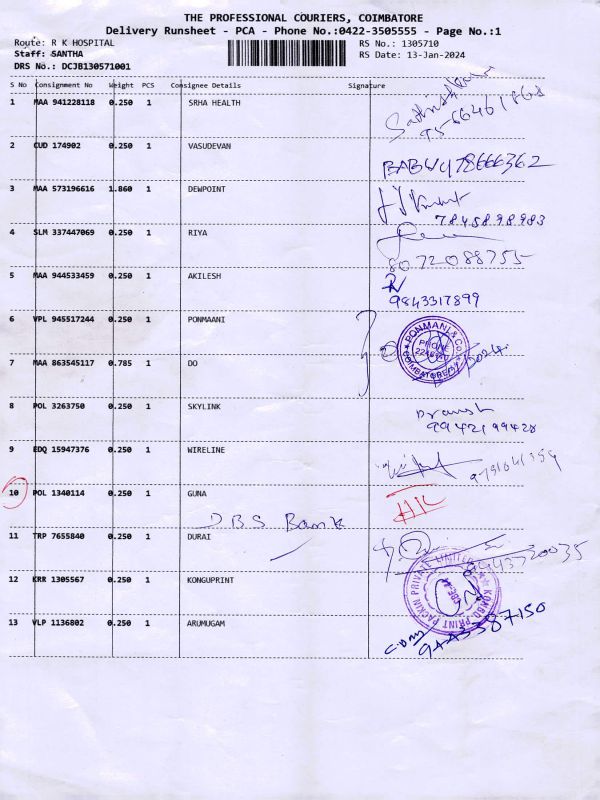 THE PROFESSIONAL COURIERS, COIMBATORE
Delivery Runsheet - PCA - Phone No.:0422-3505555 - Page No.:1
Route: R K HOSPITAL RS No.: 1305710
Staff: SANTHA RS Date: 13-Jan-2024
DRS No.: DCJB130571001
S No Consignment No Weight PCS Consignee Details Signature
1 MAA 941228118 0.250 1 SRHA HEALTH
2 CUD 174902 0.250 1 VASUDEVAN
BABU 978666362
3 MAA 573196616 1.860 1 DEWPOINT
7845898983
4 SLM 337447069 0.250 1 RIYA
8072088755
5 MAA 944533459 0.250 1 AKILESH
9843317899
6 VPL 945517244 0.250 1 PONMAANI
PONMANI & CO
PHONE
COIMBATORE
7 MAA 863545117 0.785 1 DO
8 POL 3263750 0.250 1 SKYLINK
9942199428
9 EDQ 15947376 0.250 1 WIRELINE
10 POL 1340114 0.250 1 GUNA
DBS Bank
11 TRP 7655840 0.250 1 DURAI
9443720035
12 KRR 1305567 0.250 1 KONGUPRINT
KONGO PRINT PACKIN PRIVATE LIMITED
CBE-44
13 VLP 1136802 0.250 1 ARUMUGAM
9443387150